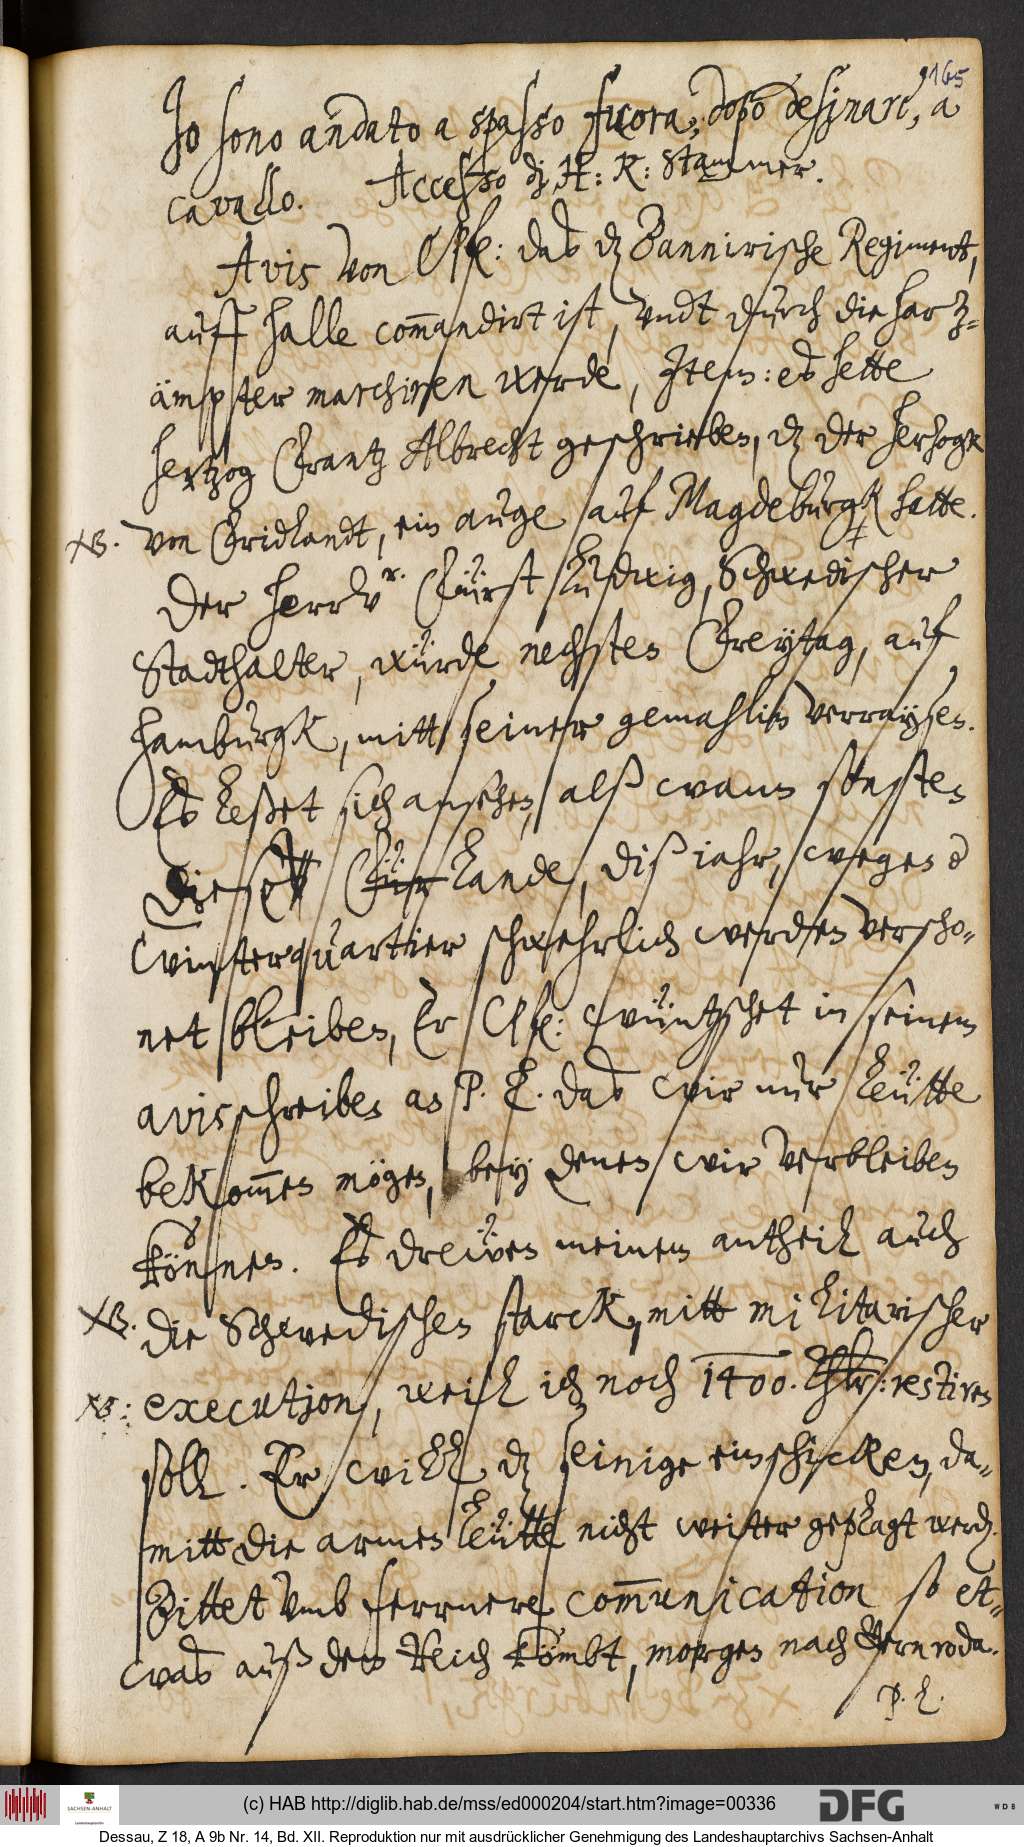 165
Io sono andato a spasso fuora, dopò desinarè, a
cavallo. Accesso dj H: K: Stammer.
Avis von CPf: das dz Bannirische Regiment,
auff Halle com̄andirt ist, undt durch die Hartz-
ämpter marchiren werde, Item: es hette
hertzog Frantz Albrecht geschrieben, dz der herzogk
NB. von Fridlandt, ein auge auf Magdeburgk hatte.
Der Herr Vr. Fürst Ludwig, Schwedischer
Stadthalter, würde nechsten Freytag, auf
Hamburgk, mitt seiner gemahlin verraysen.
Es leßet sich ansehen, alß wann
dieses Für Lande, diß iahr, wegen d
winterquartier schwehrlich werden verscho-
net bleiben, Er CPf: wüntzschet in seinem
avisschreiben an P. L. das wir nur leütte
bekom̄en mögen, bey denen wir verbleiben
können. Es dreüen meinem antheil auch
NB. die Schwedischen starck, mitt militarischer
NB: execution, weil ich noch 1400. Thlr: restiren
soll. Er will dz seinige einschicken, da-
mitt die armen leütte nicht weitter geplagt werdn.
Bittet umb fernere com̄unication so et-
was auß dem Reich kömbt, morgen nach Gernroda.
P. L.
(c) HAB http://diglib.hab.de/mss/ed000204/start.htm?image=00336
SACHSEN-ANHALT
DFG
W D B
Dessau, Z 18, A 9b Nr. 14, Bd. XII. Reproduktion nur mit ausdrücklicher Genehmigung des Landeshauptarchivs Sachsen-Anhalt